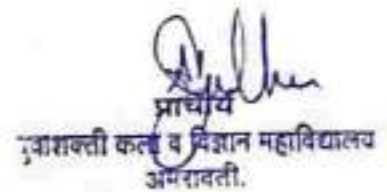 प्राचार्य
युवाशक्ती कला व विज्ञान महाविद्यालय
अमरावती.